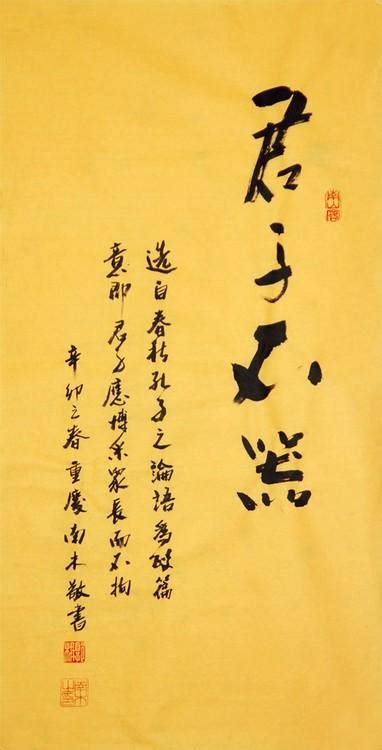 君子不器
选自春秋孔子之論語為政篇
意即君子應博采眾長而不拘
辛卯之春重慶南木敬書